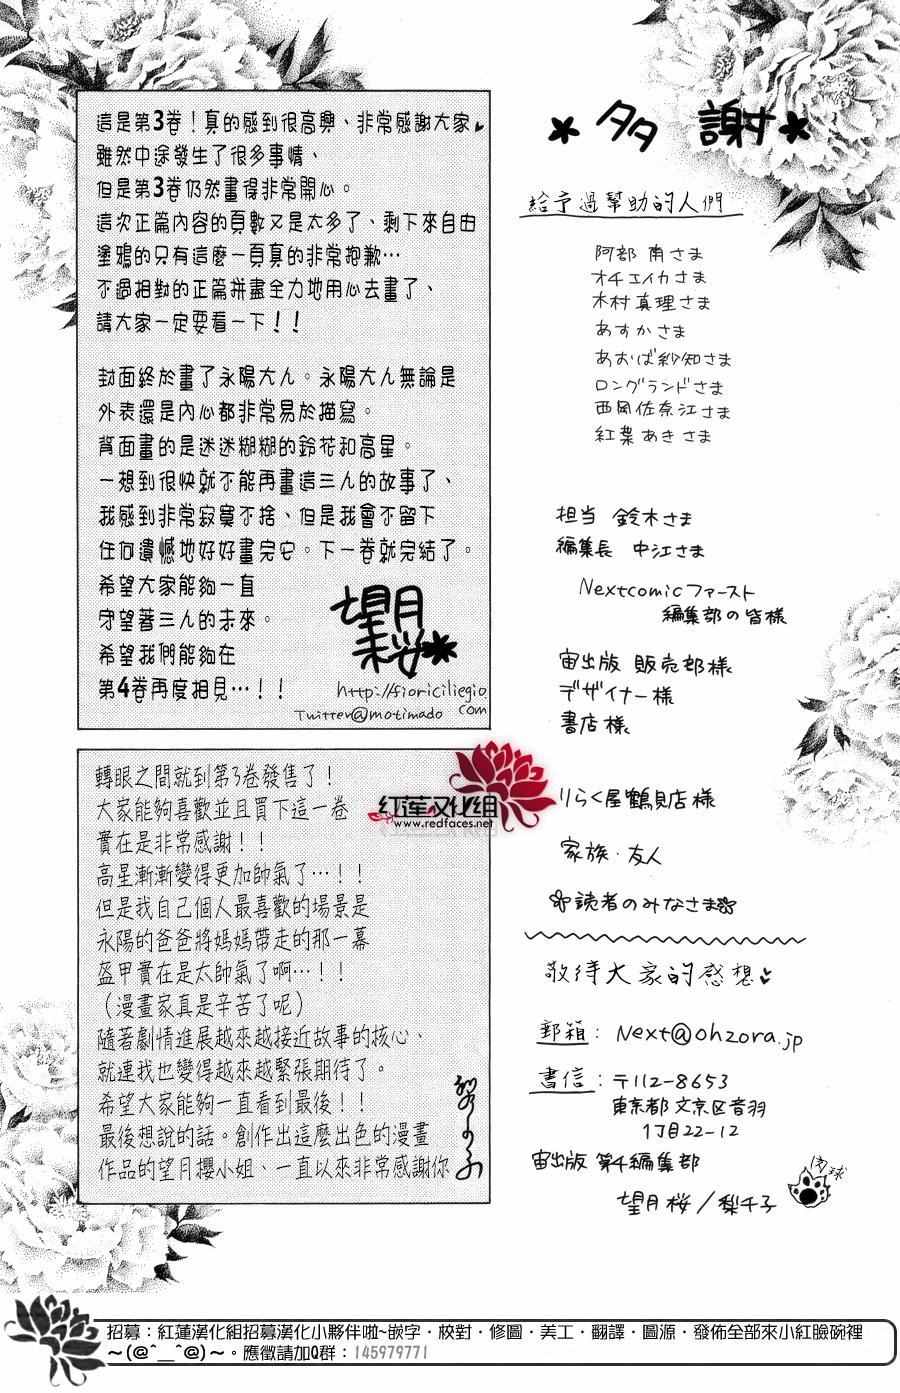 這是第3卷！真的感到很高興、非常感謝大家♥
雖然中途發生了很多事情、
但是第3卷仍然畫得非常開心。
這次正篇內容的頁數又是太多了、剩下來自由
塗鴉的只有這麼一頁真的非常抱歉…
不過相對的正篇拼盡全力地用心去畫了、
請大家一定要看一下！！
封面終於畫了永陽大人。永陽大人無論是
外表還是內心都非常易於描寫。
背面畫的是迷迷糊糊的鈴花和高星。
一想到很快就不能再畫這三人的故事了、
我感到非常寂寞不捨、但是我會不留下
任何遺憾地好好畫完它。下一卷就完結了。
希望大家能夠一直
守望著三人的未來。
希望我們能夠在
第4卷再度相見…！！
望月
桜
http://fioriciliegio.
com
Twitter@motimado
轉眼之間就到第3卷發售了！
大家能夠喜歡並且買下這一卷
實在是非常感謝！！
高星漸漸變得更加帥氣了…！！
但是我自己個人最喜歡的場景是
永陽的爸爸將媽媽帶走的那一幕
盔甲實在是太帥氣了啊…！！
（漫畫家真是辛苦了呢）
隨著劇情進展越來越接近故事的核心、
就連我也變得越來越緊張期待了。
希望大家能夠一直看到最後！！
最後想說的話。創作出這麼出色的漫畫
作品的望月櫻小姐、一直以來非常感謝你
紅蓮漢化組
www.redfaces.net
多謝
給予過幫助的人們
阿部 南さま
オチエイカさま
木村真理さま
あすかさま
あおば紗知さま
ロングランドさま
西岡佐奈江さま
紅葉あきさま
担当 鈴木さま
編集長 中江さま
Nextcomicファースト
編集部の皆様
宙出版 販売部様
デザイナー様
書店様
りらく屋鶴見店様
家族・友人
読者のみなさま
敬待大家的感想♥
郵箱：Next@ohzora.jp
書信：〒112-8653
東京都文京区音羽
1丁目22-12
宙出版 第4編集部
望月桜／梨千子
招募：紅蓮漢化組招募漢化小夥伴啦~嵌字・校對・修圖・美工・翻譯・圖源・發佈全部來小紅臉碗裡
～(@^__^@)～。應徵請加Q群：145979771